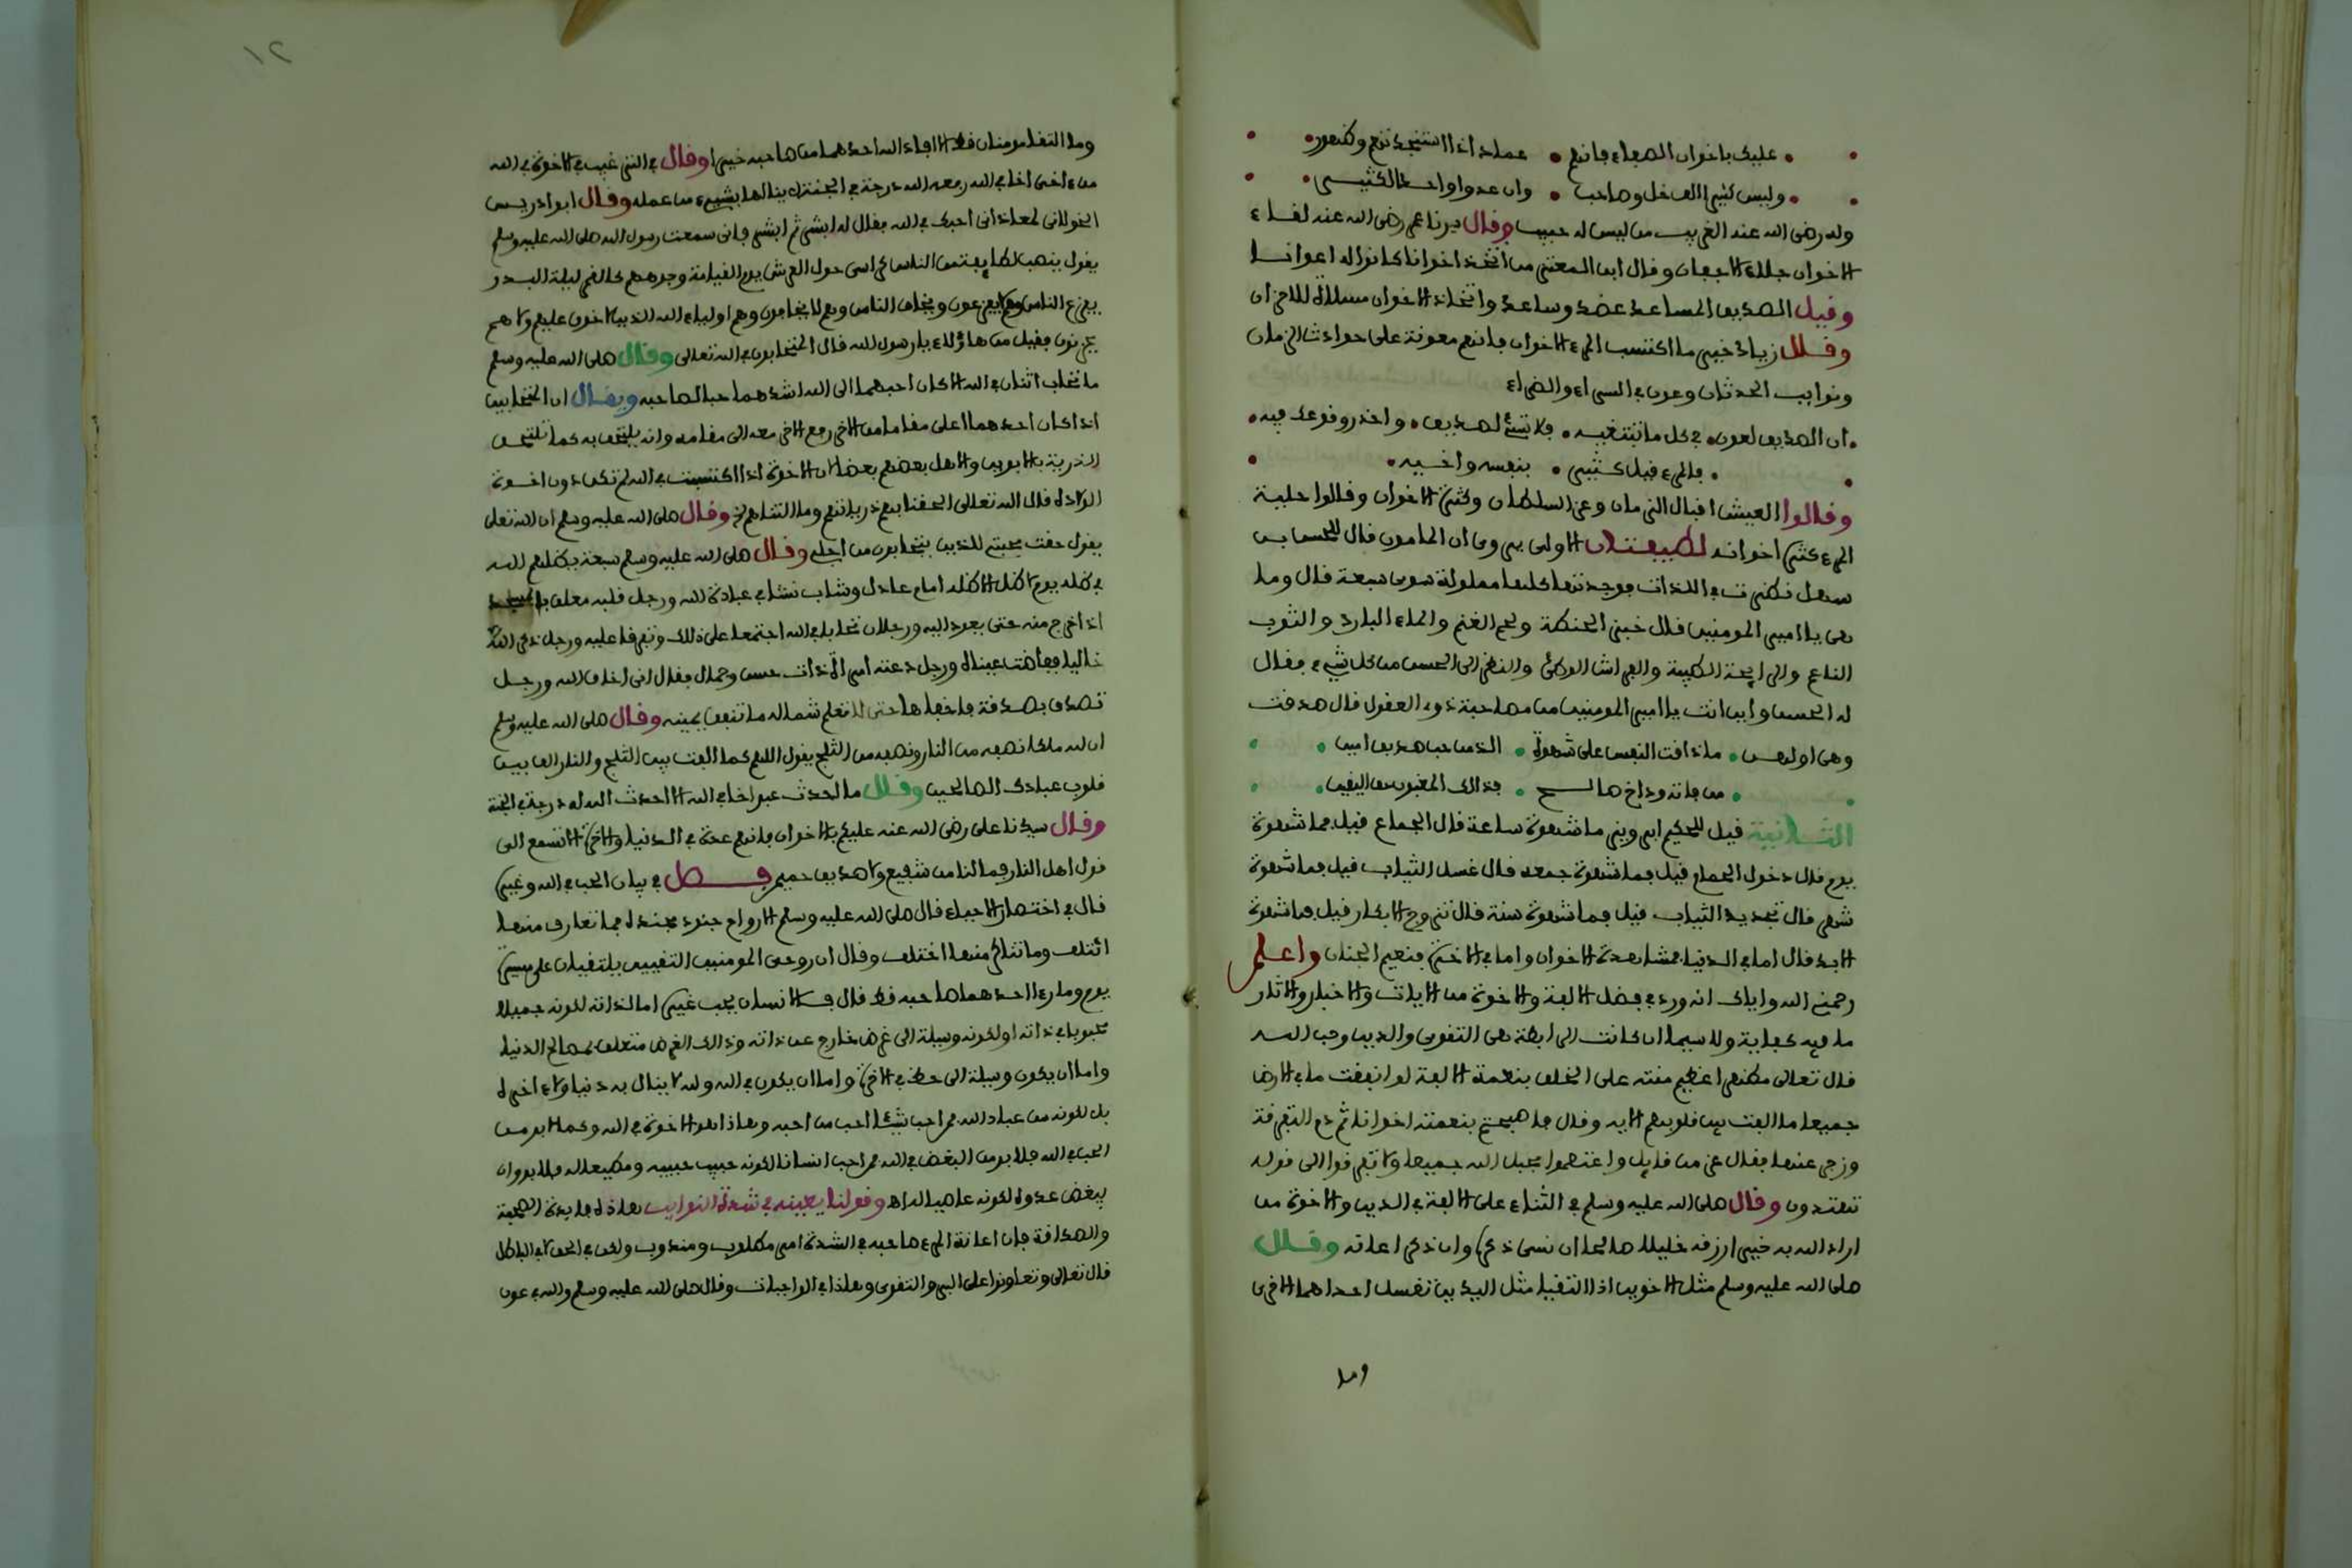 عليك باخوان الصفاء فانهم عماد اذا استنجدتهم وظهور
وليس كثيرا الف خل وصاحب وان عدوا واحدا لكثيـر
وله رضى الله عنه الغريب من ليس له حبيب وقال سيدنا عمر رضى الله عنه لقاء
الاخوان جلاء الاحزان وقال ابن المعتز من اتخذ اخوانا كانوا له اعوانـا
وقيل الصديق المساعد عضد وساعد واتخاذ الاخوان مسلاة للاحزان
وقـال زياد خير ما اكتسب المرء الاخوان فانهم معونة على حوادث الزمان
ونوايب الحدثان وعون في السراء والضراء
ان الصديق لعون في كل ما تبتغيـه فلا تسئ لصديق واحذر وقوعك فيه
فالمرء قيل كثير بنفسه واخـيه
وقـالوا العيش اقبال الزمان وعز السلطان وكثرة الاخوان وقالوا حلية
المرء كثرة اخوانه لطيفتان الاولى يروى ان المامون قال للحسن بن
سهل نظرت في اللذات فوجدتها كلها مملولة سوى سبعة قال وما
هى يا امير المومنين قال خبز الحنطة ولحم الغنم والماء البارد والثوب
الناعم والرايحة الطيبة والفراش الوطئ والنظر الى الحسن من كل شيء فقال
له الحسن واين انت يا امير المومنين من مصاحبة ذوى العقول قال صدقت
وهى اولهـن ما ذاقت النفس على شهوة الذ من حب صديق امين
من فاته ود اخ صالـح فذالك المغبون حق اليقين
الثـانية قيل للحكيم ابرويز ما شهوة ساعة قال الجماع قيل فما شهوة
يوم قال دخول الحمام قيل فما شهوة جمعه قال غسل الثياب قيل فما شهوة
شهر قال تجديد الثياب قيل فما شهوة سنة قال تزوج الابكار قيل فما شهوة
الابد قال اما في الدنيا فمشاهدة الاخوان واما في الاخرة فنعيم الجنان واعلـم
رحمنى الله واياك انه ورد في فضل الالفة والاخوة من الايات والاخبار والاثار
ما فيه كفاية ولا سيما ان كانت الرابطة هى التقوى والدين وحب اللـه
قال تعالى مظهرا عظيم منته على الخلق بنعمة الالفة لو انفقت ما في الارض
جميعا ما الفت بين قلوبهم الايه وقال فاصبحتم بنعمته اخوانا ثم ذم التفرقة
وزجر عنها فقال عز من قايل واعتصموا بحبل الله جميعا ولا تفرقوا الى قوله
تهتدون وقال صلى الله عليه وسلم في الثناء على الالفة في الدين والاخوة من
اراد الله به خيرا رزقه خليلا صالحا ان نسى ذكره وان ذكر اعانه وقـال
صلى الله عليه وسلم مثل الاخوين اذا التقيا مثل اليدين تغسل احداهما الاخرى
وما
٢١
وما التقا مومنان قط الا افاد الله احدهما من صاحبه خيرا وقال في الترغيب في الاخوة في الله
من ءاخى اخا في الله رفعه الله درجة في الجنة لا ينالها بشيء من عمله وقال ابو ادريس
الخولانى لمعاذ انى احبك في الله فقال له ابشر ثم ابشر فانى سمعت رسول الله صلى الله عليه وسلم
يقول ينصب لطايفة من الناس كراسى حول العرش يوم القيامة وجوههم كالقمر ليلة البـدر
يفزع الناس وهم لا يفزعون ويخاف الناس وهم لا يخافون وهم اولياء الله الذين لا خوف عليهم ولا هم
يحزنون فقيل من هاؤلاء يا رسول الله قال المتحابون في الله تعالى وقال صلى الله عليه وسلم
ما تحاب اثنان في الله الا كان احبهما الى الله اشدهما حبا لصاحبه ويقـال ان المتحابين
اذا كان احدهما اعلى مقاما من الاخر رفع الاخر معه الى مقامه وانه يلتحق به كما تلتحـق
الذرية بالابوين والاهل بعضهم بعضا لان الاخوة اذا اكتسبت في الله لم تكن دون اخـوة
الولادة قال الله تعالى الحقنا بهم ذرياتهم وما التناهم وقال صلى الله عليه وسلم ان الله تعلى
يقول حقت محبتى للذين يتحابون من اجلى وقـال صلى الله عليه وسلم سبعة يظلهم اللـه
في ظله يوم لا ظل الا ظله امام عادل وشاب نشا في عبادة الله ورجل قلبه معلق بالمسجد
اذا خرج منه حتى يعود اليه ورجلان تحابا في الله اجتمعا على ذلك وتفرقا عليه ورجل ذكر الله
خاليا ففاضت عيناه ورجل دعته امراة ذات حسن وجمال فقال انى اخاف الله ورجـل
تصدق بصدقة فاخفاها حتى لا تعلم شماله ما تنفق يمينه وقال صلى الله عليه وسلم
ان لله ملكا نصفه من النار ونصفه من الثلج يقول اللهم كما الفت بين الثلج والنار الف بين
قلوب عبادك الصالحين وقـال ما احدث عبد اخا في الله الا احدث الله له درجة في الجنة
وقـال سيدنا على رضى الله عنه عليكم بالاخوان فانهم عدة في الدنيا والاخرة الا تسمع الى
قول اهل النار فما لنا من شفيع ولا صديق حميم فـصل في بيان الحب في الله وغيره
قال في اختصار الاحياء قال صلى الله عليه وسلم الارواح جنود مجندة فما تعارف منها
ائتلف وما تناكر منها اختلف وقال ان روحى المومنين التقيين يلتقيان على مسيرة
يوم وما رءا احدهما صاحبه قط قال فـالانسان يحب غيره اما لذاته لكونه جميلا
محبوبا في ذاته او لكونه وسيلة الى غرض خارج عن ذاته وذالك الغرض متعلق بمصالح الدنيا
واما ان يكون وسيلة الى حظ في الاخرة واما ان يكون في الله ولله لا ينال به دنيا ولا ءاخرة
بل لكونه من عباد الله فمن احب شيئا احب من احبه وهاذا هو الاخوة في الله وكما لابد من
الحب في الله فلا بد من البغض في الله فمن احب انسانا لكونه حبيب حبيبه ومطيعا له فلا بد وان
يبغض عدوه لكونه عاصيا له اه وقولنا يعينه في شدة النوايب هاذه فايدة الصحبة
والصداقة فان اعانة المرء صاحبه في الشدة امر مطلوب ومندوب ولكن في الحق لا في الباطل
قال تعالى وتعاونوا على البر والتقوى وهاذا في الواجبات وقال صلى الله عليه وسلم والله في عون